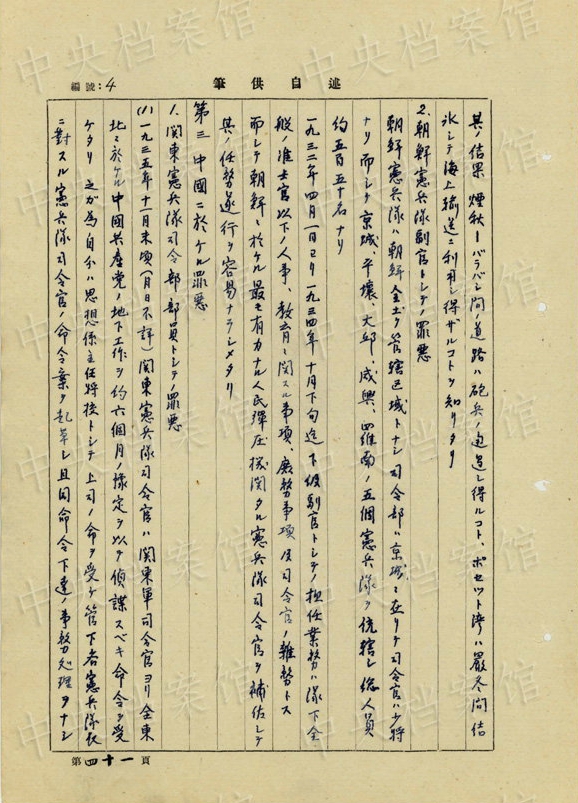 編號:4
筆供自述
其ノ結果煙秋ーバラバシ間ノ道路ハ砲兵ノ通過シ得ルコト、ポセット湾ハ嚴冬間結
氷シテ海上輸送ニ利用シ得ザルコトヲ知リタリ
2.朝鮮憲兵隊副官トシテノ罪悪
朝鮮憲兵隊ハ朝鮮全土ヲ管轄区域トナシ司令部ハ京城ニ在リテ司令官ハ少将
ナリ而シテ京城、平壤、大邱、咸興、羅南ノ五個憲兵隊ヲ統轄シ総人員
約五百五十名ナリ
一九三二年四月一日ヨリ一九三四年十月下旬迄下級副官トシテノ担任業務ハ隊下全
般ノ准士官以下ノ人事、教育ニ関スル事項、庶務事項及司令官ノ雜務トス
而シテ朝鮮ニ於ケル最モ有力ナル人民彈圧機関タル憲兵隊司令官ヲ補佐シテ
其ノ任務遂行ヲ容易ナラシメタリ
第三 中國ニ於ケル罪悪
1.関東憲兵隊司令部々部員トシテノ罪悪
(1)一九三五年十一月末頃(月日不詳)関東憲兵隊司令官ハ関東軍司令官ヨリ全東
北ニ於ケル中國共産党ノ地下工作ヲ約六個月ノ豫定ヲ以テ偵諜スベキ命令ヲ受
ケタリ之ガ為自分ハ思想係主任将校トシテ上司ノ命ヲ受ケ管下各憲兵隊長
ニ對スル憲兵隊司令官ノ命令案ヲ起草シ且同命令下達ノ事務処理ヲナシ
第四十一頁
中央档案馆